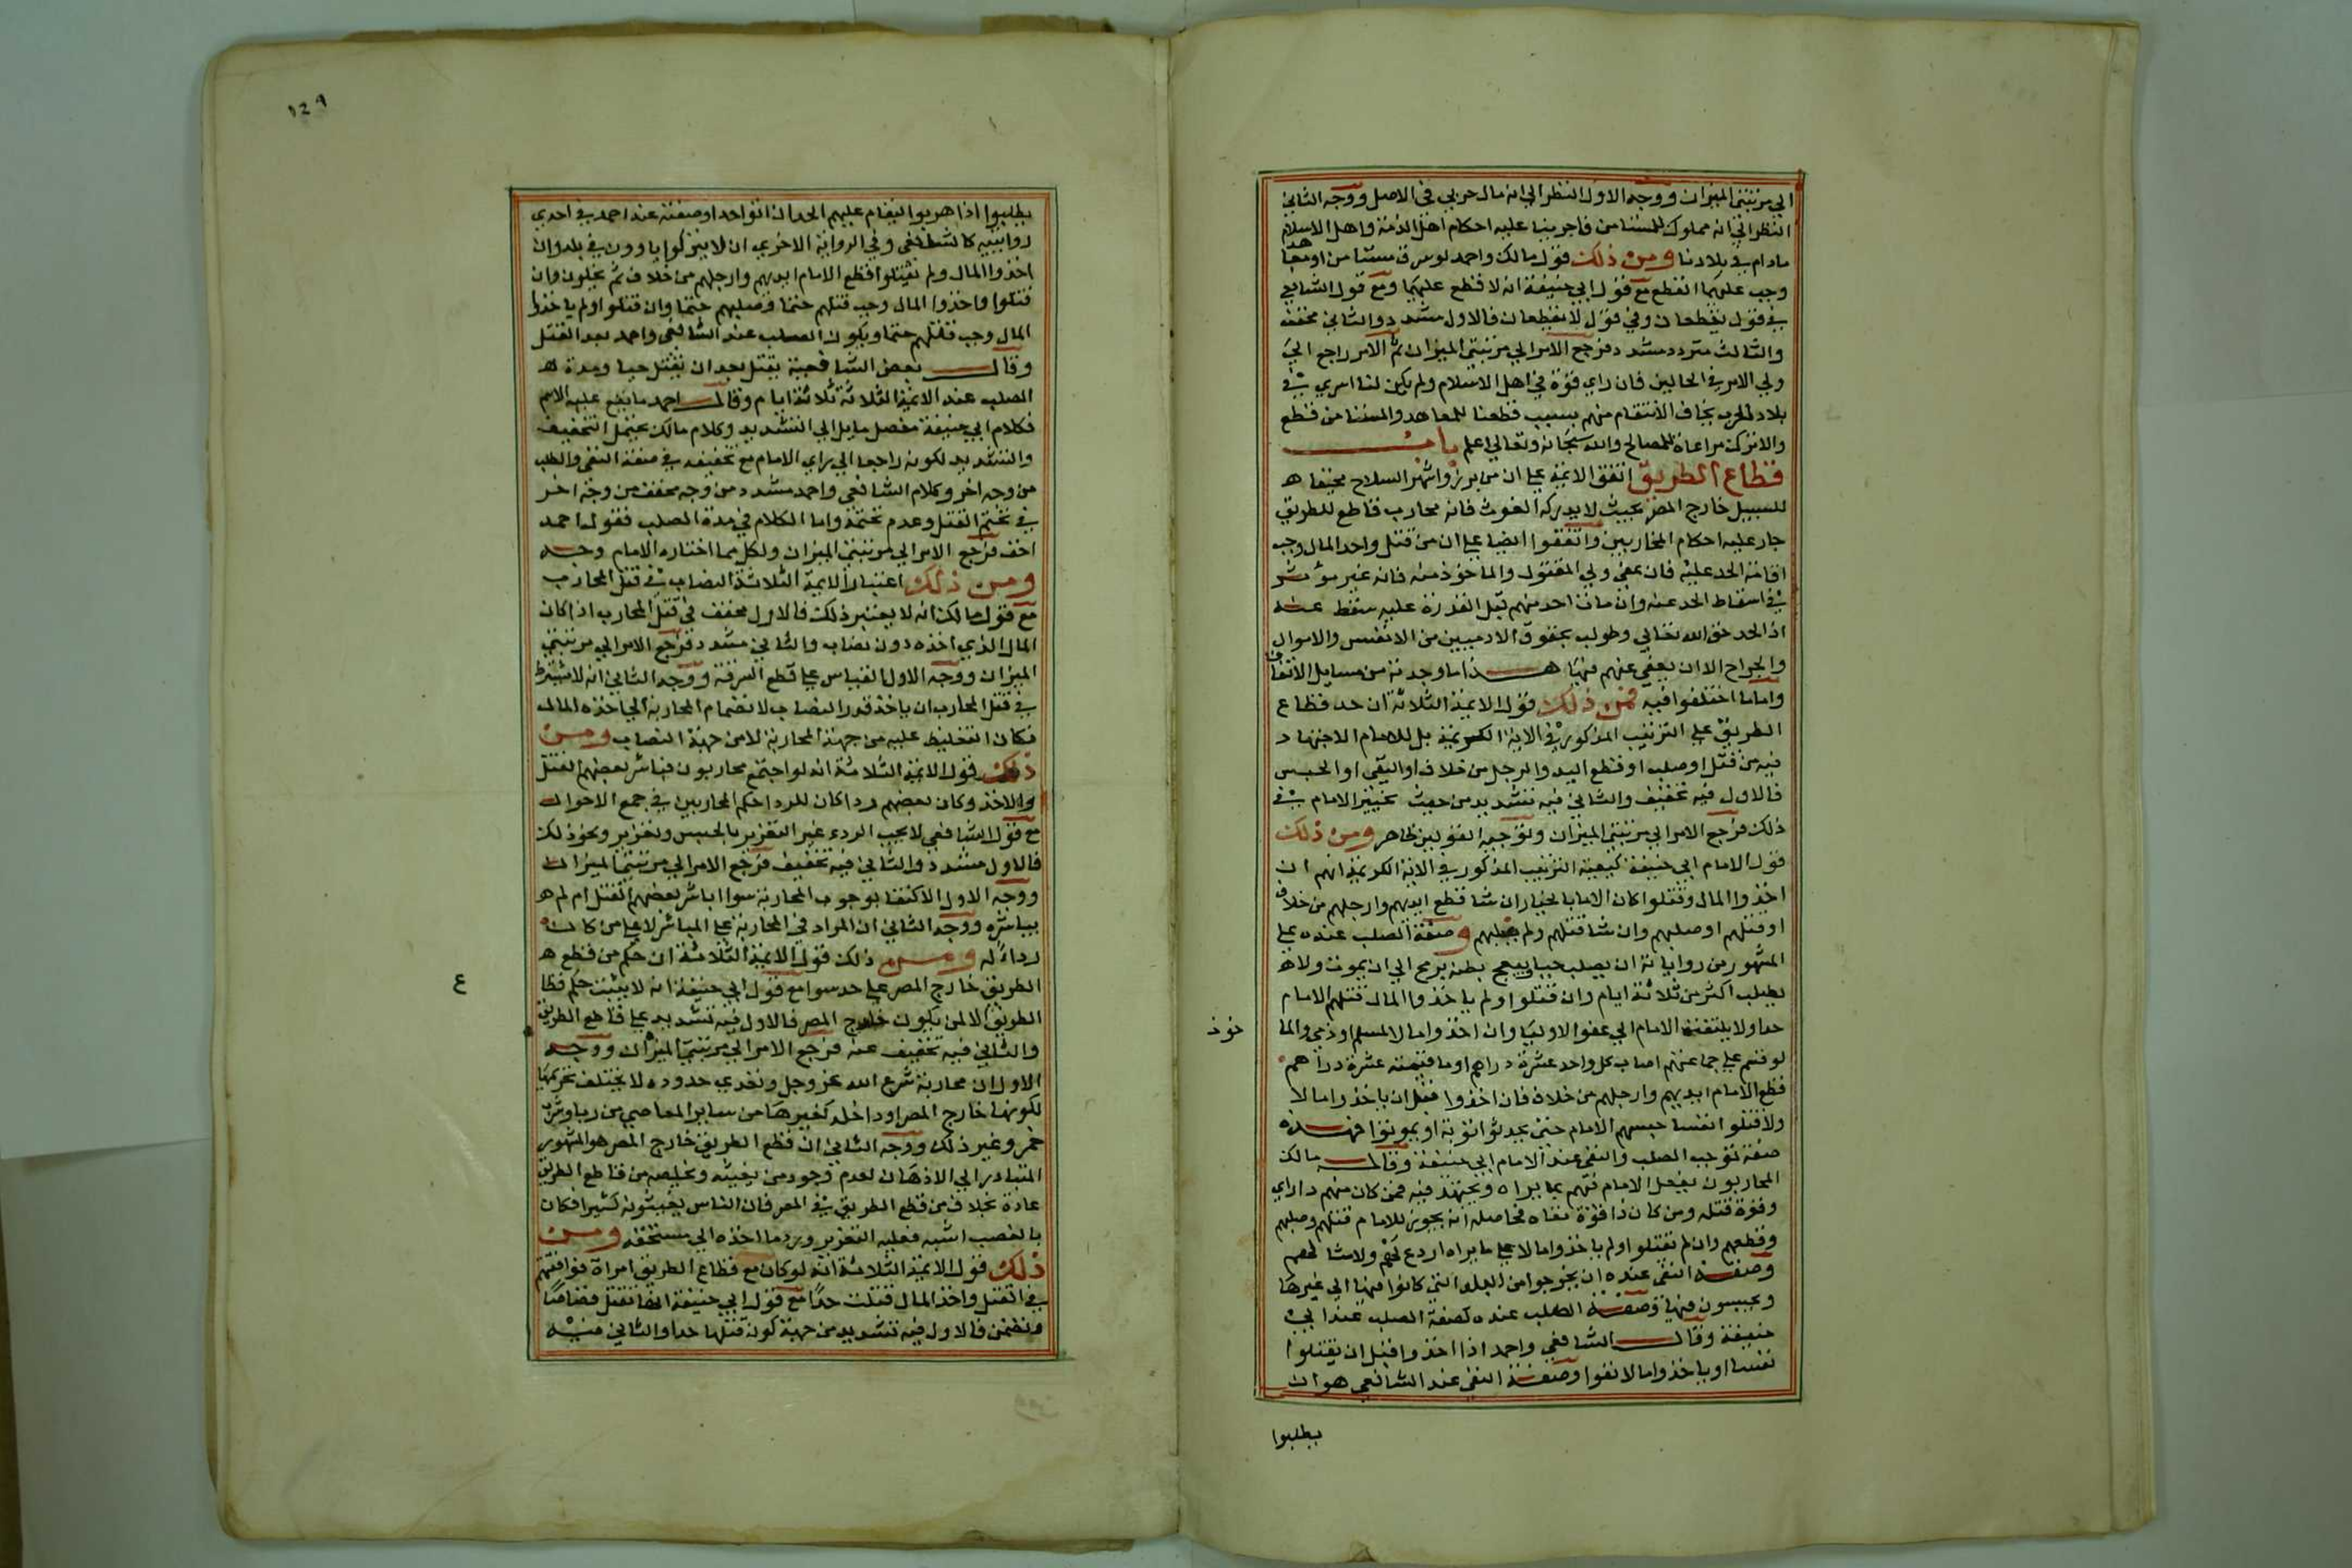 الي مرتبتي الميزان ووجه الاول النظر الي انه مال حربي في الاصل ووجه الثاني
النظر الي انه مملوك للمستامن فاجرينا عليه احكام اهل الذمة واهل الاسلام
مادام في بلادنا ومن ذلك قول مالك واحمد لو سرق مستامن او معاهد
وجب عليهما القطع مع قول ابي حنيفة انه لا قطع عليهما ومع قول الشافعي
في قول يقطعان وفي قول لا يقطعان فالاول مشدد والثاني مخفف
والثالث متردد مشدد فرجع الامر الي مرتبتي الميزان ثم الامر راجع الي
ولي الامر في الحالين فان راي قوة في اهل الاسلام ولم يكن لنا اسري في
بلاد الحرب يخاف الانتقام منهم بسبب قطعنا للمعاهد والمستامن قطع
والا ترك مراعاة للمصالح والله سبحانه وتعالي اعلم باب
قطاع الطريق اتفق الائمة علي ان من برز واشهر السلاح مخيفا ه
للسبيل خارج المصر بحيث لا يدركه الغوث فانه محارب قاطع للطريق
جار عليه احكام المحاربين واتفقوا ايضا علي ان من قتل واخذ المال وجب
اقامة الحد عليه فان عفي ولي المقتول والماخوذ منه فانه غير مؤثر
في اسقاط الحد عنه وان مات احد منهم قبل القدرة عليه سقط عنه
اذ الحد حق الله تعالي وطولب بحقوق الادميين من الانفس والاموال
والجراح الا ان يعفي عنهم فيها هذا ما وجدته من مسايل الاتفاق
واما ما اختلفوا فيه فمن ذلك قول الائمة الثلاثة ان حد قطاع
الطريق علي الترتيب المذكور في الاية الكريمة بل للامام الاجتهاد
فيه من قتل او صلب او قطع اليد والرجل من خلاف او النفي او الحبس
فالاول فيه تخفيف والثاني فيه تشديد من حيث تخيير الامام في
ذلك فرجع الامر الي مرتبتي الميزان وتوجيه القولين ظاهر ومن ذلك
قول الامام ابي حنيفة كيفية الترتيب المذكور في الاية الكريمة انهم ان
اخذوا المال وقتلوا كان الامام بالخيار ان شا قطع ايديهم وارجلهم من خلاف
او قتلهم او صلبهم وان شا قتلهم ولم يصلبهم وصفة الصلب عنده علي
المشهور من رواياته ان يصلب حيا ويبعج بطنه برمح الي ان يموت ولا ه
يصلب اكثر من ثلاثة ايام وان قتلوا ولم ياخذوا المال قتلهم الامام
حدا ولا يلتفت الامام الي عفو الاوليا وان اخذوا مالا لمسلم او ذمي والما
خوذ
لو قسم علي جماعتهم اصاب كل واحد عشرة دراهم او ما قيمته عشرة دراهم
قطع الامام ايديهم وارجلهم من خلاف فان اخذوا قبل ان ياخذوا مالا
ولا قتلوا نفسا حبسهم الامام حتي يحدثوا توبة او يموتوا فهذه
صفة توجب الصلب والنفي عند الامام ابي حنيفة وقال مالك
المحاربون يفعل الامام فيهم بما يراه ويجتهد فيه فمن كان منهم ذا راي
وقوة قتله ومن كان ذا قوة نفاه فحاصله انه يجوز للامام قتلهم وصلبهم
وقطعهم وان لم يقتلوا ولم ياخذوا مالا علي ما يراه اردع لهم ولامثالهم
وصفة النفي عنده ان يخرجوا من البلد التي كانوا فيها الي غيرها
ويحبسون فيها وصفة الصلب عنده كصفة الصلب عند ابي
حنيفة وقال الشافعي واحمد اذا اخذوا قبل ان يقتلوا
نفسا او ياخذوا مالا نفوا وصفة النفي عند الشافعي هو ان
يطلبوا
١٤٩
يطلبوا اذا هربوا ليقام عليهم الحد ان اتوا حدا وصفته عند احمد في احدي
روايتيه كالشافعي وفي الرواية الاخري ان لا يتركوا ياوون في بلد وان
اخذوا المال ولم يقتلوا قطع الامام ايديهم وارجلهم من خلاف ثم يخلون وان
قتلوا واخذوا المال وجب قتلهم حتما وصلبهم حتما وان قتلوا ولم ياخذوا
المال وجب قتلهم حتما ويكون الصلب عند الشافعي واحمد بعد القتل
وقال بعض الشافعية يقتل بعد ان يقتل حيا ومدة ه
الصلب عند الائمة الثلاثة ثلاثة ايام وقال احمد ما يقع عليه الاسم
فكلام ابي حنيفة مفصل مايل الي التشديد وكلام مالك يحتمل التخفيف
والتشديد لكونه راجعا الي راي الامام مع تخفيفه في صفة النفي والصلب
من وجه اخر وكلام الشافعي واحمد مشدد من وجه مخفف من وجه اخر
في تحتم القتل وعدم تحتمه واما الكلام في مدة الصلب فقول احمد
اخف فرجع الامر الي مرتبتي الميزان ولكل مما اختاره الامام وجه
ومن ذلك اعتبار الائمة الثلاثة النصاب في قتل المحارب
مع قول مالك انه لا يعتبر ذلك فالاول مخفف في قتل المحارب اذا كان
المال الذي اخذه دون نصاب والثاني مشدد فرجع الامر الي مرتبتي
الميزان ووجه الاول القياس علي قطع السرقة ووجه الثاني انه لا يشترط
في قتل المحارب ان ياخذ قدر النصاب لانضمام المحاربة الي اخذه المال
فكان التغليظ عليه من جهة المحاربة لا من جهة النصاب ومن
ذلك قول الائمة الثلاثة انه لو اجتمع محاربون فباشر بعضهم القتل
والاخذ وكان بعضهم ردا كان للردا حكم المحاربين في جمع الاحوال
مع قول الشافعي لا يجب الردء غير التعزير بالحبس وتعزير ونحو ذلك
فالاول مشدد والثاني فيه تخفيف فرجع الامر الي مرتبتي الميزان
ووجه الاول الاكتفا بوجود المحاربة سوا باشر بعضهم القتل ام لم ه
يباشره ووجه الثاني ان المراد في المحاربة علي المباشر لا علي من كان
رداء له ومن ذلك قول الائمة الثلاثة ان حكم من قطع ه
الطريق خارج المصر علي حد سوا مع قول ابي حنيفة انه لا يثبت حكم قطا
ع
الطريق الا لمن يكون خارج المصر فالاول فيه تشديد علي قاطع الطريق
والثاني فيه تخفيف عنه فرجع الامر الي مرتبتي الميزان ووجه
الاول ان محاربة شرع الله عز وجل وتعدي حدوده لا يختلف تحريمها
لكونها خارج المصر او داخله كغيرها من ساير المعاصي من ربا وشرب
خمر وغير ذلك ووجه الثاني ان قطع الطريق خارج المصر هو المشهور
المتبادر الي الاذهان لعدم وجود من يغيثه ويخلصه من قاطع الطريق
عادة بخلاف من قطع الطريق في المصر فان الناس يغيثونه كثيرا فكان
بالغصب اشبه فعليه التعزير ورد ما اخذه الي مستحقه ومن
ذلك قول الائمة الثلاثة انه لو كان مع قطاع الطريق امراة فوافقتهم
في القتل واخذ المال قتلت حدا مع قول ابي حنيفة انها تقتل قصاصا
وتضمن فالاول فيه تشديد من جهة كون قتلها حدا والثاني فيه